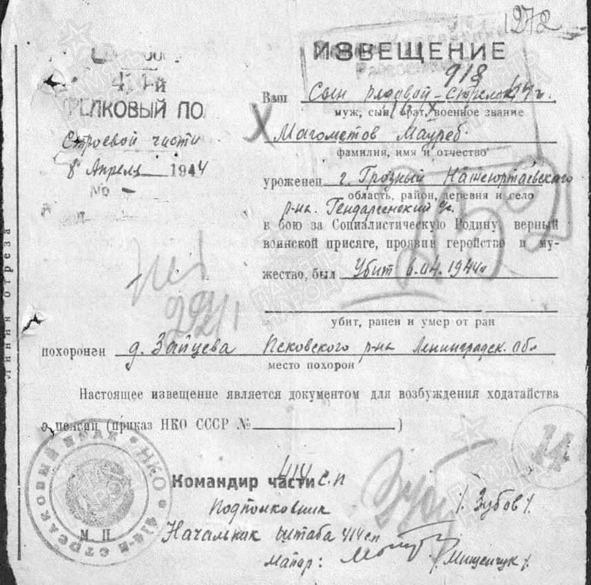 1272
ИЗВЕЩЕНИЕ
918
СТРЕЛКОВЫЙ ПОЛ
Строевой части
8 Апрель 1944
№ -
Ваш Сын рядовой - Стрелок
муж, сын, брат, военное звание
Магометов Мауреб
фамилия, имя и отчество
уроженец г. Грозный
область, район, деревня и село
р-на.
в бою за Социалистическую Родину, верный
воинской присяге, проявив геройство и му-
жество, был Убит 6.04.1944г
убит, ранен и умер от ран
похоронен д. Зайцева Псковского р-на Ленинградск. обл
место похорон
Настоящее извещение является документом для возбуждения ходатайства
о пенсии (приказ НКО СССР № )
Командир части 414 с.п
Подполковник / Зубов /
Начальник штаба 414 сп
майор: / Мищенчук /
линия отреза
414-й СТРЕЛКОВЫЙ ПОЛК * НКО *
М П
14